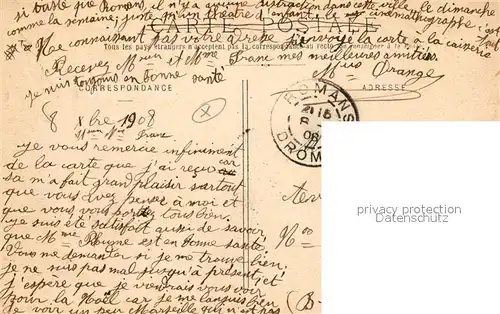 si vaste que Romans, il n'y a aucune distraction dans cette ville, le dimanche
comme la semaine; juste un théâtre et un cinématographe c'est
CARTE POSTALE
Ne connaissant pas votre adresse j'envoie la carte à la caserne
Tous les pays étrangers n'acceptent pas la correspondance au recto
Recevez Mr et Mme Franc mes meilleures amitiés
je suis toujours en bonne santé
Mius Orange
CORRESPONDANCE
ADRESSE
8 Xbre 1908
Franc
ROMANS
DROME
Je vous remercie infiniment
de la carte que j'ai reçu car
sa m'a fait grand plaisir surtout
que vous avez pensé à moi et
que vous vous portez tous bien.
Je suis été satisfait aussi de savoir
que Mme est en bonne santé
Vous me demander si je me trouve bien.
je ne suis pas mal jusqu'à présent, et
j'espère que je viendrais vous voir
pour la Noël car je me languis bien
de voir un peu Marseille qui n'est pas
privacy protection
Datenschutz